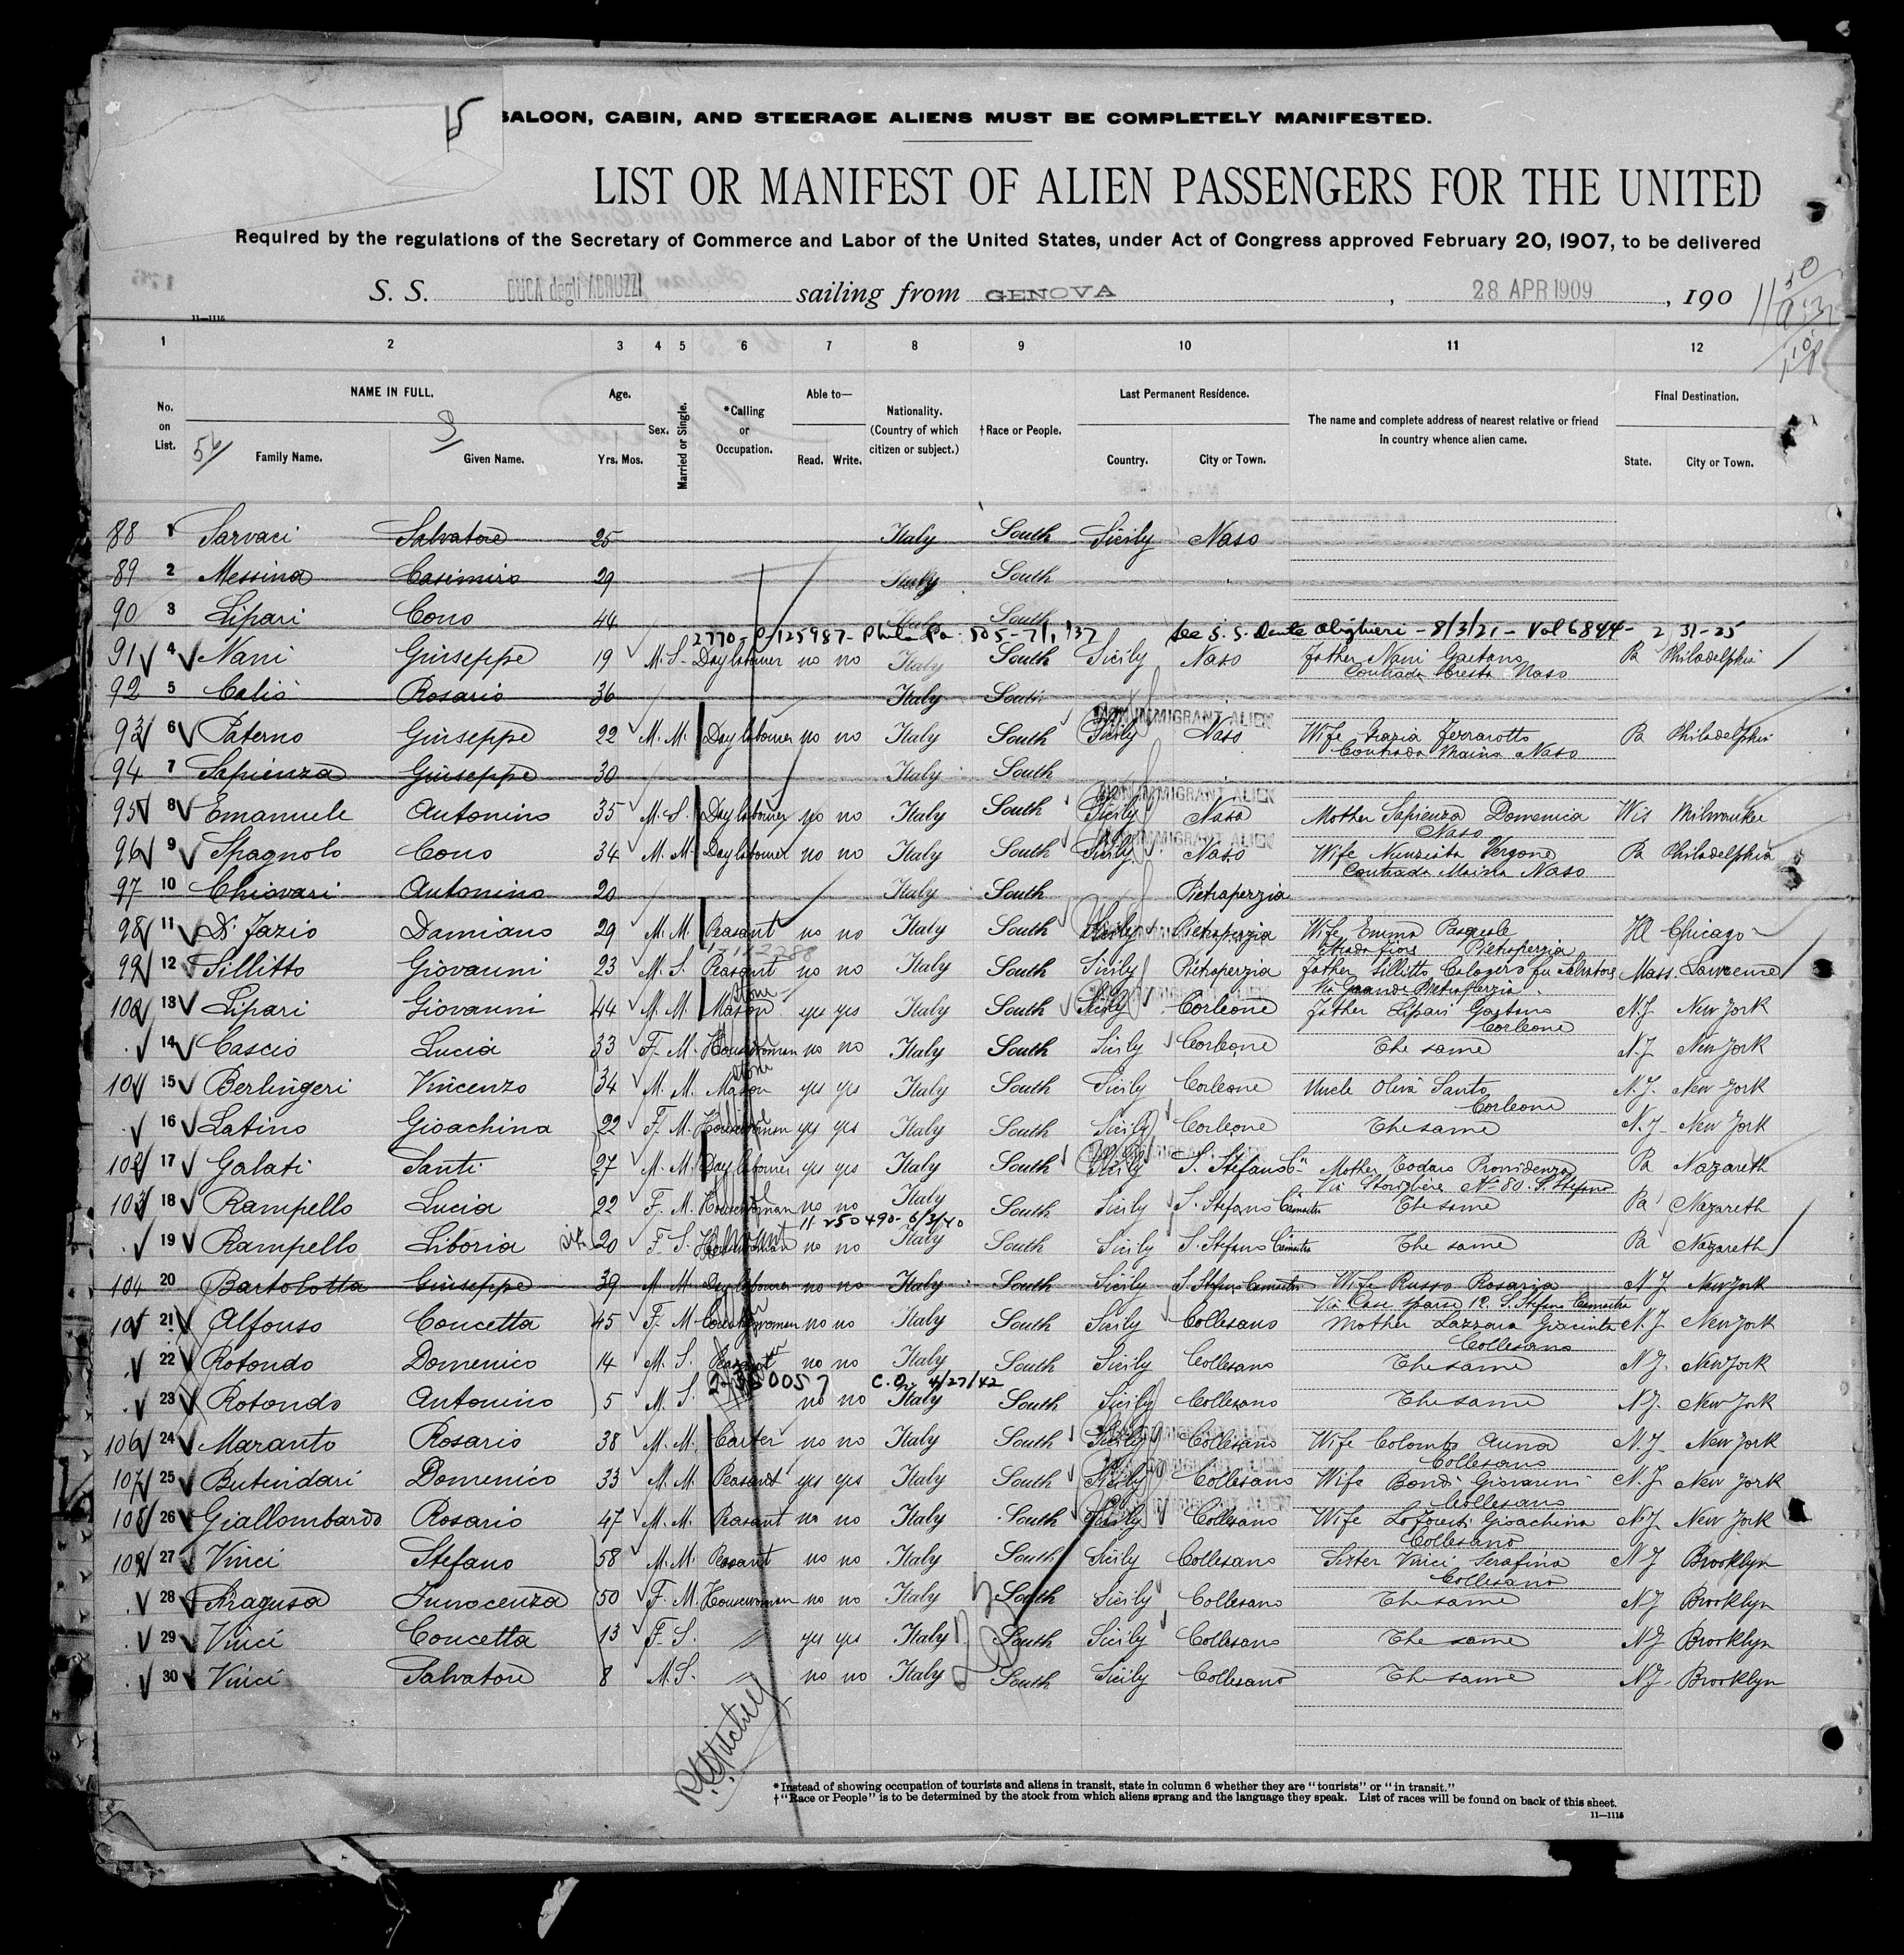 15
SALOON, CABIN, AND STEERAGE ALIENS MUST BE COMPLETELY MANIFESTED.
LIST OR MANIFEST OF ALIEN PASSENGERS FOR THE UNITED
Required by the regulations of the Secretary of Commerce and Labor of the United States, under Act of Congress approved February 20, 1907, to be delivered
S. S. DUCA degli ABRUZZI sailing from GENOVA, 28 APR 1909, 190
11—1115
1 2 3 4 5 6 7 8 9 10 11 12
No. on List. NAME IN FULL. Family Name. Given Name. Age. Yrs. Mos. Sex. Married or Single. *Calling or Occupation. Able to— Read. Write. Nationality. (Country of which citizen or subject.) †Race or People. Last Permanent Residence. Country. City or Town. The name and complete address of nearest relative or friend in country whence alien came. Final Destination. State. City or Town.
88 1 Sarvaci Salvatore 25 Italy South Sicily Naso
89 2 Messina Casimiro 29 South
90 3 Lipari Cono 44 Italy South
2770-P-125987- Phila Pa. 505-7/1/37 See S. S. Dante Alighieri - 8/3/21 - Vol 6844- 2 31-25
91 4 Nani Giuseppe 19 M. S. Day labourer no no Italy South Sicily Naso Father Nani Gaetano Pa Philadelphia
Contrada Cresta Naso
92 5 Calio Rosario 36 Italy South
NON IMMIGRANT ALIEN
93 6 Paterno Giuseppe 22 M. M. Day labourer no no Italy South Sicily Naso Wife Grazia Ferrarotto Pa Philadelphia
Contrada Maina Naso
94 7 Sapienza Giuseppe 30 Italy South
NON IMMIGRANT ALIEN
95 8 Emanuele Antonino 35 M. S. Day labourer no no Italy South Sicily Naso Mother Sapienza Domenica Wis Milwaukee
Naso
NON IMMIGRANT ALIEN
96 9 Spagnolo Cono 34 M. M. Day labourer no no Italy South Sicily Naso Wife Nunziata Vergone Pa Philadelphia
Contrada Maina Naso
97 10 Chiovari Antonino 20 Italy South Pietraperzia
98 11 Di Fazio Damiano 29 M. M. Peasant no no Italy South Sicily Pietraperzia Wife Emma Pasquale Ill Chicago
Strada Fiore Pietraperzia
99 12 Sillitto Giovanni 23 M. S. Peasant no no Italy South Sicily Pietraperzia Father Sillitto Calogero fu Salvatore Mass. Lawrence
Via Grande Pietraperzia
100 13 Lipari Giovanni 44 M. M. Stone Mason yes yes Italy South Sicily Corleone Father Lipari Gaetano N.J. New York
Corleone
14 Cascio Lucia 33 F. M. Housewoman no no Italy South Sicily Corleone The same N.J. New York
101 15 Berlingeri Vincenzo 34 M. M. Stone Mason yes yes Italy South Sicily Corleone Uncle Oliva Santo N.J. New York
Corleone
16 Latino Gioachina 22 F. M. Housewoman yes yes Italy South Sicily Corleone The same N.J. New York
102 17 Galati Santi 27 M. M. Day labourer yes yes Italy South Sicily S. Stefano Ca Mother Todaro Providenza Pa Nazareth
Via Nº 80. S. Stefano
103 18 Rampello Lucia 22 F. M. Housewoman no no Italy South Sicily S. Stefano Camastra The same Pa Nazareth
11-250490-6/3/40
19 Rampello Liboria sis. 20 F. S. Servant no no Italy South Sicily S. Stefano Camastra The same Pa Nazareth
104 20 Bartolotta Giuseppe 39 M. M. Day labourer no no Italy South Sicily S. Stefano Camastra Wife Russo Rosaria N.J. New York
Via Case sparse 12. S. Stefano Camastra
105 21 Alfonso Concetta 45 F. M. no no Italy South Sicily Collesano Mother Lazzara Giacinta N.J. New York
Collesano
22 Rotondo Domenico 14 M. S. Peasant no no Italy South Sicily Collesano The same N.J. New York
C.O. 4/27/42
23 Rotondo Antonino 5 M. S. no no Italy South Sicily Collesano The same N.J. New York
106 24 Maranto Rosario 38 M. M. Carter no no Italy South Sicily Collesano Wife Colomba Anna N.J. New York
Collesano
107 25 Butindari Domenico 33 M. M. Peasant yes yes Italy South Sicily Collesano Wife Bondi Giovanni N.J. New York
Collesano
108 26 Giallombardo Rosario 47 M. M. Peasant no no Italy South Sicily Collesano Wife Lo Foresti Gioachina N.J. New York
Collesano
109 27 Vinci Stefano 58 M. M. Peasant no no Italy South Sicily Collesano Sister Vinci Serafina N.J. Brooklyn
Collesano
28 Aragusa Innocenza 50 F. M. Housewoman no no Italy South Sicily Collesano The same N.J. Brooklyn
29 Vinci Concetta 13 F. S. " yes yes Italy South Sicily Collesano The same N.J. Brooklyn
30 Vinci Salvatore 8 M. S. " no no Italy South Sicily Collesano The same N.J. Brooklyn
*Instead of showing occupation of tourists and aliens in transit, state in column 6 whether they are "tourists" or "in transit."
†"Race or People" is to be determined by the stock from which aliens sprang and the language they speak. List of races will be found on back of this sheet.
11—1115